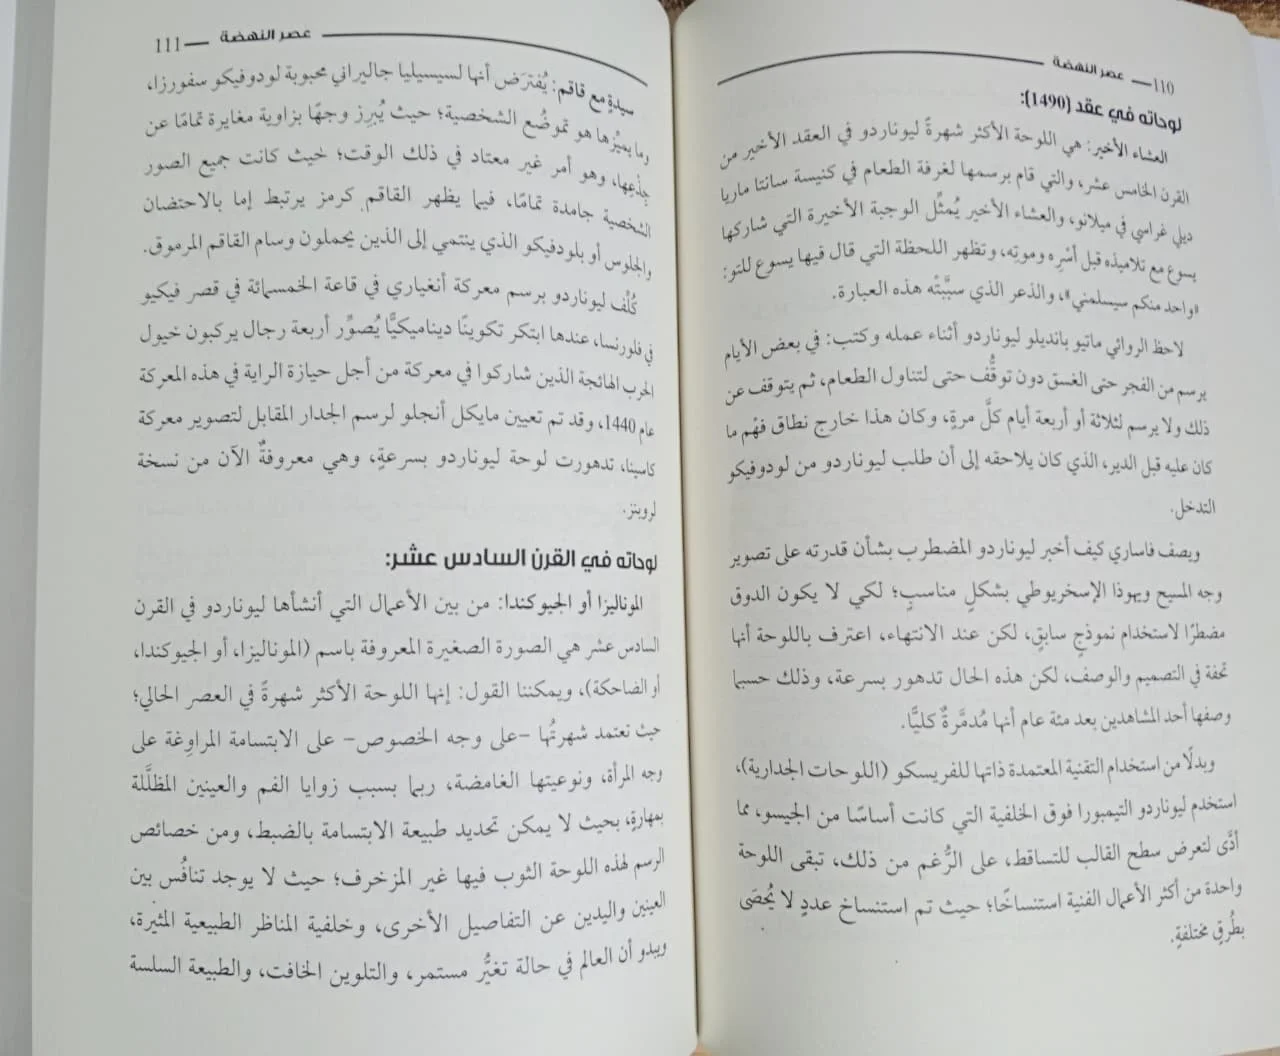 110 عصر النهضة
لوحاته في عقد (1490):
العشاء الأخير: هي اللوحة الأكثر شهرةً ليوناردو في العقد الأخير من
القرن الخامس عشر، والتي قام برسمها لغرفة الطعام في كنيسة سانتا ماريا
ديلي غراسي في ميلانو، والعشاء الأخير يُمثِّل الوجبة الأخيرة التي شاركها
يسوع مع تلاميذه قبل أسْرِه وموتِه، وتظهر اللحظة التي قال فيها يسوع للتو:
«واحد منكم سيسلمني»، والذعر الذي سبَّبتْه هذه العبارة.
لاحظ الروائي ماتيو بانديلو ليوناردو أثناء عمله وكتب: في بعض الأيام
يرسم من الفجر حتى الغسق دون توقُّف حتى لتناول الطعام، ثم يتوقف عن
ذلك ولا يرسم لثلاثة أو أربعة أيام كلَّ مرةٍ، وكان هذا خارج نطاق فهْم ما
كان عليه قبل الدير، الذي كان يلاحقه إلى أن طلب ليوناردو من لودوفيكو
التدخل.
ويصف فاساري كيف أخبر ليوناردو المضطرب بشأن قدرته على تصوير
وجه المسيح ويهوذا الإسخريوطي بشكلٍ مناسبٍ؛ لكي لا يكون الدوق
مضطرًا لاستخدام نموذجٍ سابقٍ، لكن عند الانتهاء، اعترف باللوحة أنها
تحفة في التصميم والوصف، لكن هذه الحال تدهور بسرعة، وذلك حسبما
وصفها أحد المشاهدين بعد مئة عام أنها مُدمَّرةٌ كليًّا.
وبدلًا من استخدام التقنية المعتمدة ذاتها للفريسكو (اللوحات الجدارية)،
استخدم ليوناردو التيمبورا فوق الخلفية التي كانت أساسًا من الجيسو، مما
أدَّى لتعرض سطح القالب للتساقط، على الرُّغم من ذلك، تبقى اللوحة
واحدة من أكثر الأعمال الفنية استنساخًا؛ حيث تم استنساخ عددٍ لا يُحصَى
بطُرقٍ مختلفةٍ.
عصر النهضة 111
سيدةٍ مع قاقم: يُفترَض أنها لسيسيليا جاليراني محبوبة لودوفيكو سفورزا،
وما يميزُها هو تموضُع الشخصية؛ حيث يُبرِز وجهًا بزاوية مغايرة تمامًا عن
جذْعِها، وهو أمر غير معتاد في ذلك الوقت؛ حيث كانت جميع الصور
الشخصية جامدة تمامًا، فيما يظهر القاقم كرمز يرتبط إما بالاحتضان
والجلوس أو بلودفيكو الذي ينتمي إلى الذين يحملون وسام القاقم المرموق.
كُلِّف ليوناردو برسم معركة أنغياري في قاعة الخمسمائة في قصر فيكيو
في فلورنسا، عندها ابتكر تكوينًا ديناميكيًّا يُصوِّر أربعة رجال يركبون خيول
الحرب الهائجة الذين شاركوا في معركة من أجل حيازة الراية في هذه المعركة
عام 1440، وقد تم تعيين مايكل أنجلو لرسم الجدار المقابل لتصوير معركة
كاسينا، تدهورت لوحة ليوناردو بسرعةٍ، وهي معروفةٌ الآن من نسخة
لروبنز.
لوحاته في القرن السادس عشر:
الموناليزا أو الجيوكندا: من بين الأعمال التي أنشأها ليوناردو في القرن
السادس عشر هي الصورة الصغيرة المعروفة باسم (الموناليزا، أو الجيوكندا،
أو الضاحكة)، ويمكننا القول: إنها اللوحة الأكثر شهرةً في العصر الحالي؛
حيث تعتمد شهرتُها -على وجه الخصوص- على الابتسامة المراوِغة على
وجه المرأة، ونوعيتها الغامضة، ربما بسبب زوايا الفم والعينين المظلَّلة
بمهارةٍ، بحيث لا يمكن تحديد طبيعة الابتسامة بالضبط، ومن خصائص
الرسم لهذه اللوحة الثوب فيها غير المزخرف؛ حيث لا يوجد تنافُس بين
العينين واليدين عن التفاصيل الأخرى، وخلفية المناظر الطبيعية المثيرة،
ويبدو أن العالم في حالة تغيُّر مستمر، والتلوين الخافت، والطبيعة السلسة